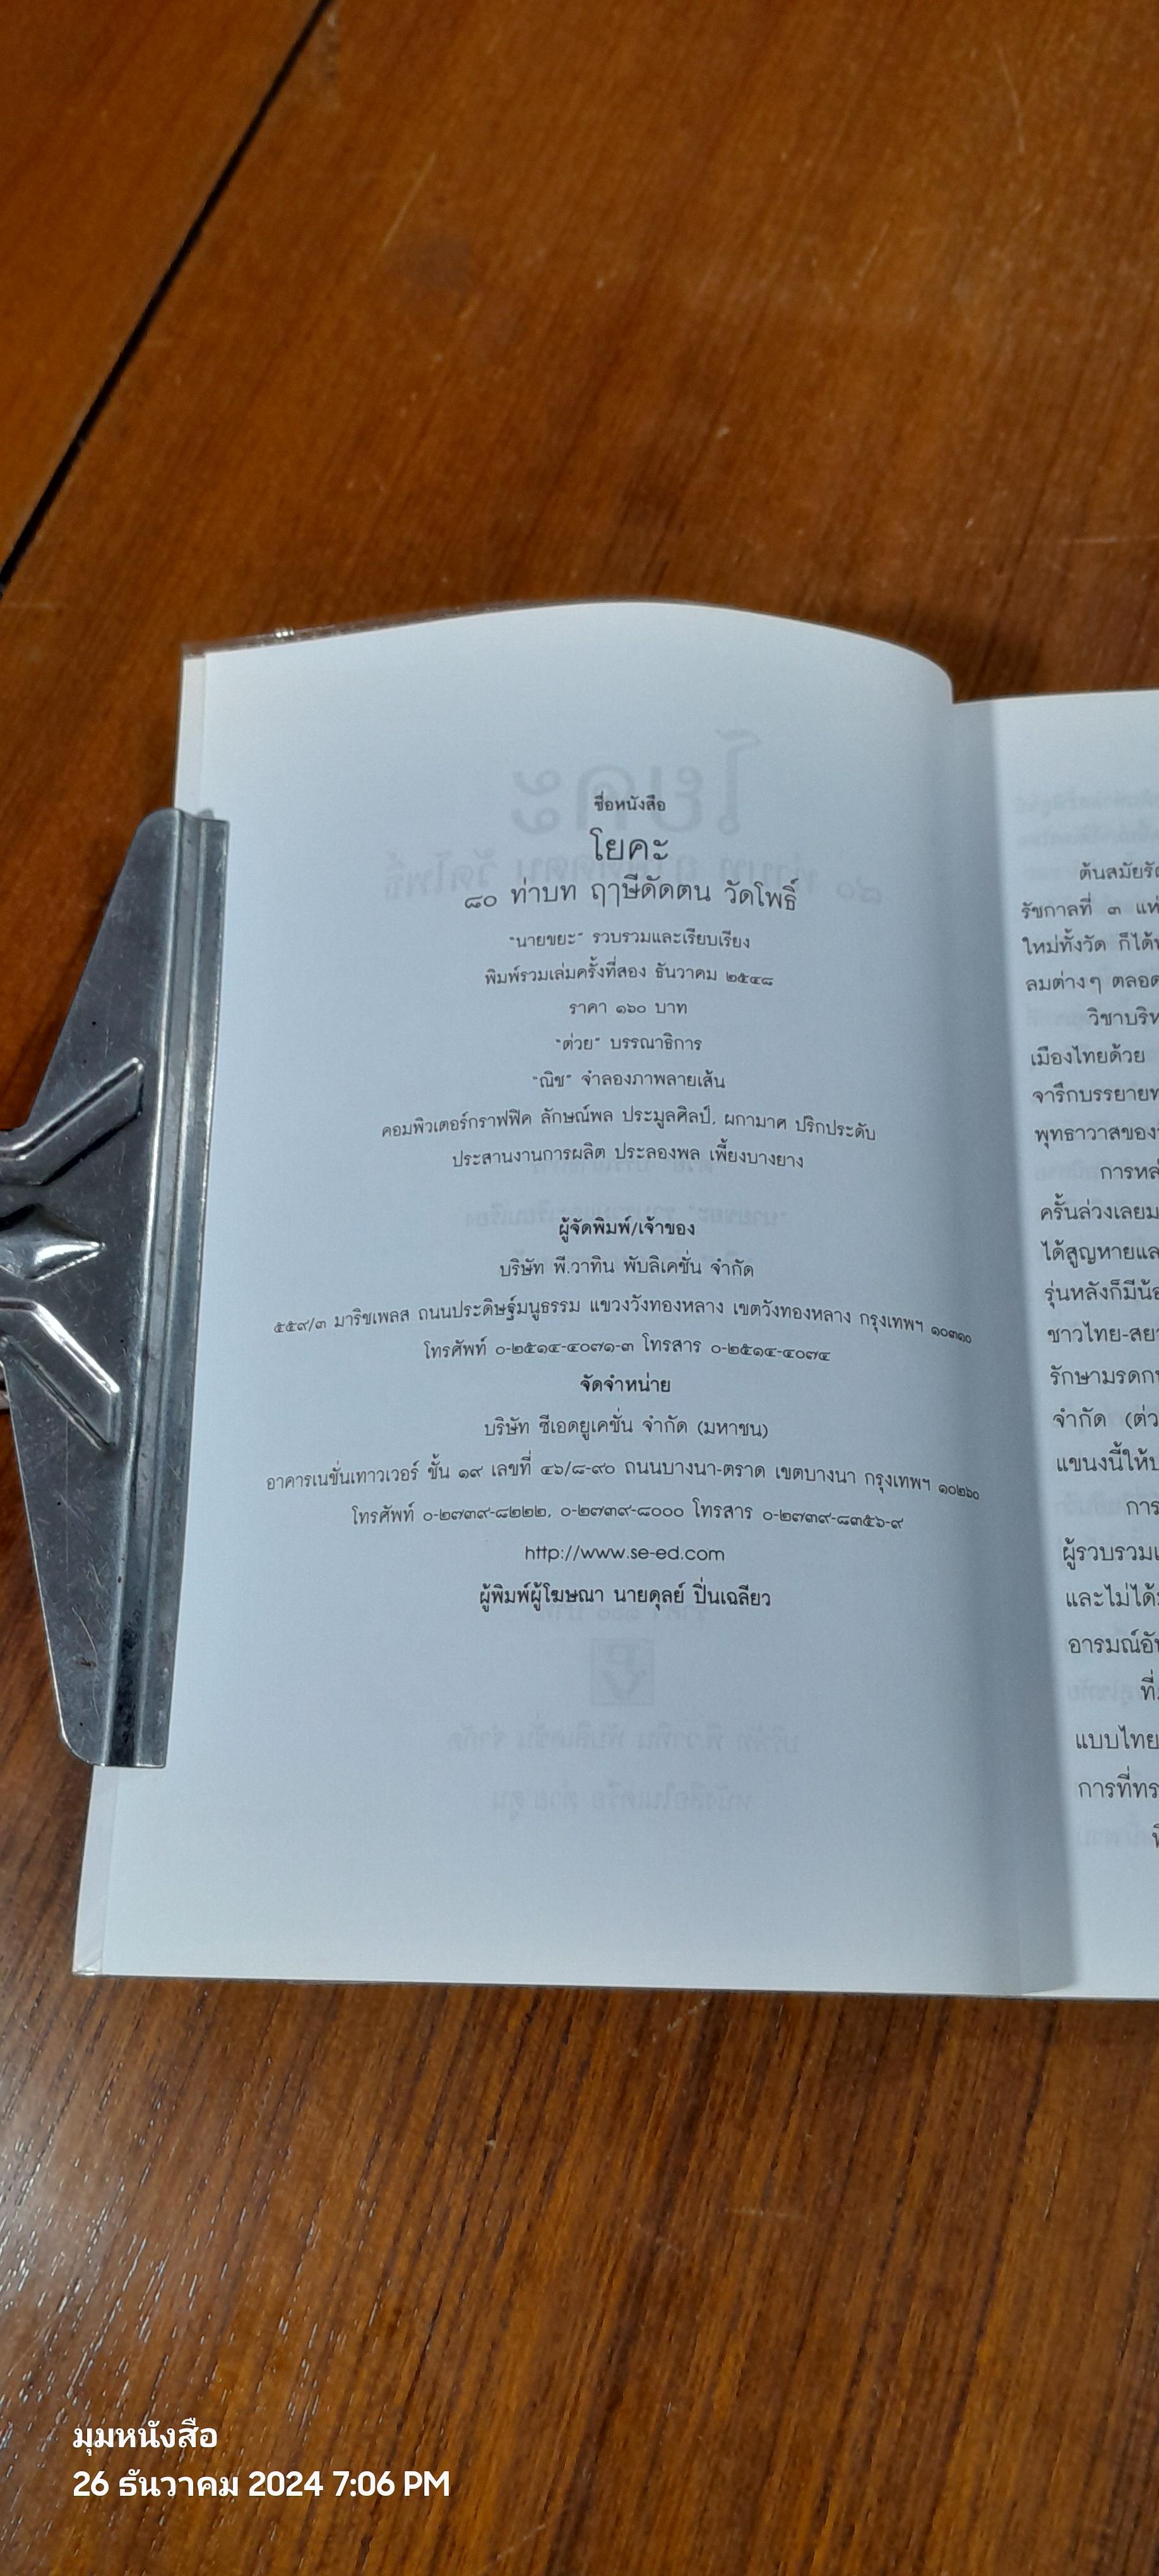 ชื่อหนังสือ
โยคะ
๘๐ ท่าบท ฤๅษีดัดตน วัดโพธิ์
"นายขยะ" รวบรวมและเรียบเรียง
พิมพ์รวมเล่มครั้งที่สอง ธันวาคม ๒๕๔๘
ราคา ๑๖๐ บาท
"ต่วย" บรรณาธิการ
"ณิช" จำลองภาพลายเส้น
คอมพิวเตอร์กราฟฟิค ลักษณ์พล ประมูลศิลป์, ผกามาศ ปริกประดับ
ประสานงานการผลิต ประลองพล เพี้ยงบางยาง
ผู้จัดพิมพ์/เจ้าของ
บริษัท พี.วาทิน พับลิเคชั่น จำกัด
๕๕๙/๓ มาริชเพลส ถนนประดิษฐ์มนูธรรม แขวงวังทองหลาง เขตวังทองหลาง กรุงเทพฯ ๑๐๓๑๐
โทรศัพท์ ๐-๒๕๑๔-๔๐๗๑-๓ โทรสาร ๐-๒๕๑๔-๔๐๗๔
จัดจำหน่าย
บริษัท ซีเอดยูเคชั่น จำกัด (มหาชน)
อาคารเนชั่นเทาวเวอร์ ชั้น ๑๙ เลขที่ ๔๖/๘-๙๐ ถนนบางนา-ตราด เขตบางนา กรุงเทพฯ ๑๐๒๖๐
โทรศัพท์ ๐-๒๗๓๙-๘๒๒๒, ๐-๒๗๓๙-๘๐๐๐ โทรสาร ๐-๒๗๓๙-๘๓๕๖-๙
http://www.se-ed.com
ผู้พิมพ์ผู้โฆษณา นายดุลย์ ปิ่นเฉลียว
ต้นสมัย
รัชกาลที่ ๓
ใหม่ทั้งวัด ก็ได้
ลมต่างๆ ตลอด
วิชา
เมืองไทยด้วย
จารึกบรรยาย
พุทธาวาสของ
การ
ครั้นล่วงเลย
ได้สูญหาย
รุ่นหลังก็มี
ชาวไทย-
รักษามรดก
จำกัด
แขนงนี้ให้
การ
ผู้รวบรวม
และไม่ได้
อารมณ์
ที่
แบบไทย
การที่
มุมหนังสือ
26 ธันวาคม 2024 7:06 PM